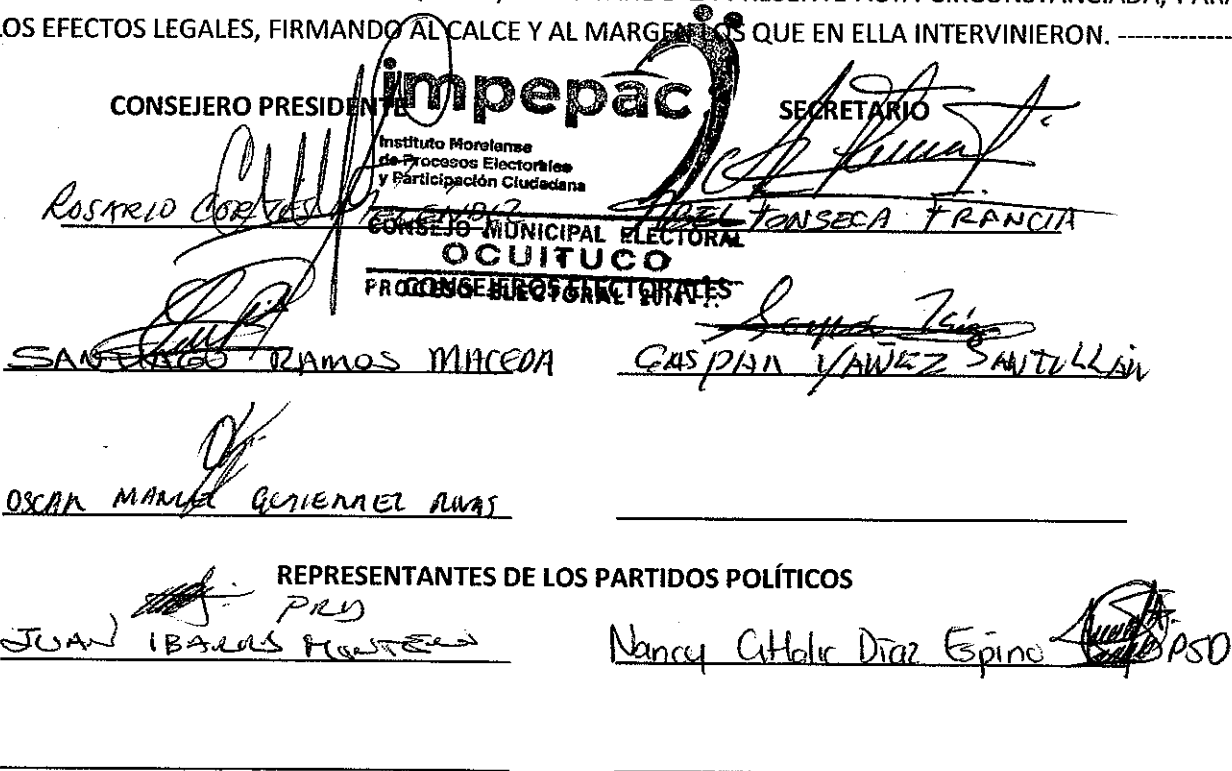 LOS EFECTOS LEGALES, FIRMANDO AL CALCE Y AL MARGEN LOS QUE EN ELLA INTERVINIERON. --------------
CONSEJERO PRESIDENTE
impepac
SECRETARIO
Instituto Morelense
de Procesos Electorales
y Participación Ciudadana
ROSARIO CORTES
FONSECA FRANCIA
CONSEJO MUNICIPAL ELECTORAL
OCUITUCO
CONSEJEROS ELECTORALES
PROCESO ELECTORAL
SANTIAGO RAMOS MACEDA
GASPAR YAÑEZ SANTILLÁN
OSCAR MANUEL GUTIERREZ RIVAS
REPRESENTANTES DE LOS PARTIDOS POLÍTICOS
PRD
JUAN IBARRA MONTERO
Nancy Díaz Espino PSD